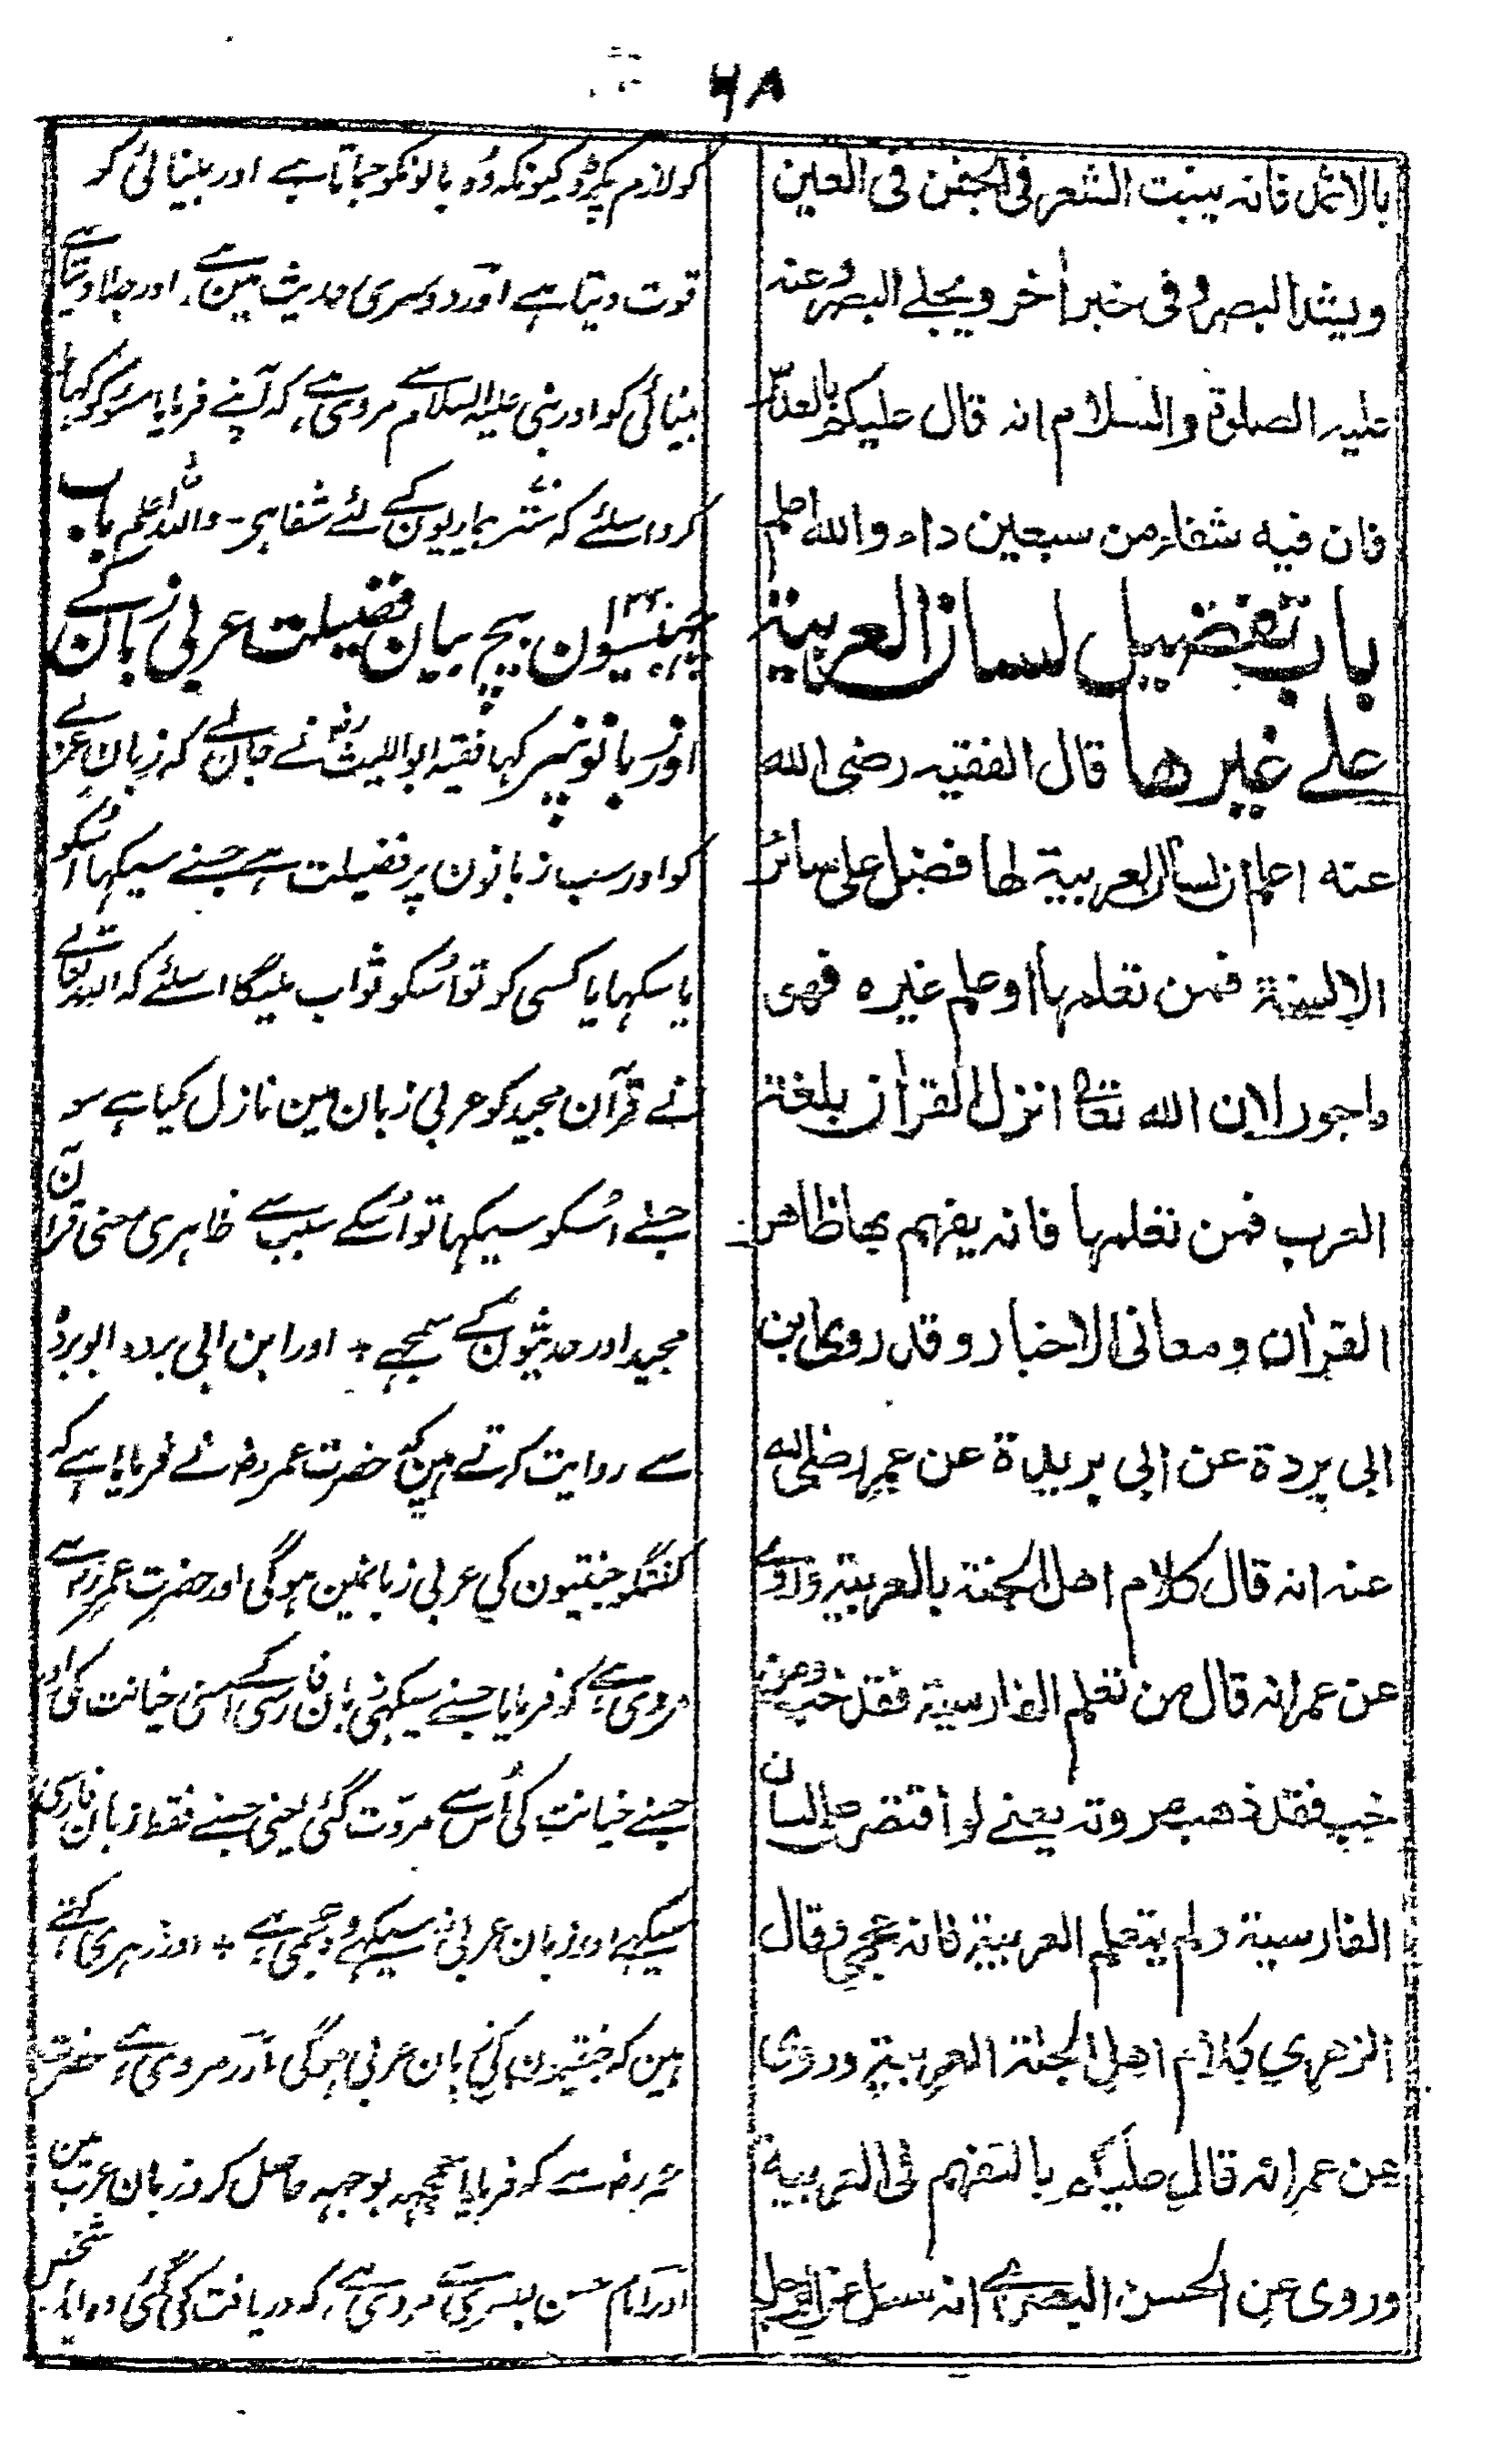 ۶۸
بالاثمد فانه ينبت الشعر فى الجفن فى العين
ويشد البصر وفى خبر اٰخر ويجلے البصر وعنه
عليه الصلوة والسلام انه قال عليكم
فان فيه شفاء من سبعين داء والله اعلم
باب تفضيل لسان العربية
علے غيرها قال الفقيه رضى الله
عنه اعلم ان لسان العربية لها فضل على سائر
الالسنة فمن تعلمها او علم غيره فهى
ماجور لان الله تعا انزل القراٰن بلغة
العرب فمن تعلمها فانه يفهم بها ظاهر
القراٰن ومعانى الاخبار وقد روى ابن
ابى بردة عن ابى بريدة عن عمر رضى الله
عنه انه قال كلام اهل الجنة بالعربية وروے
عن عمر انه قال من تعلم الفارسية فقد خب ومن
خب فقد ذهب مروته يعنے لو اقتصر على لسان
الفارسية ولم يتعلم العربية فانه عجمى وقال
الزهري كلام اهل الجنة العربية وروى
عن عمر انه قال عليكم بالتفهم فى العربية
وروى عن الحسن البصرے انه سئل عن الرجل
کو لازم پکڑو کیونکہ وُہ بالونکو جماتا ہے اور بینائی کو
قوت دیتا ہے اور دوسری حدیث مین ہے، اور جلا دیتا ہے
بینائی کو اور نبی علیہ السلام سے مروی ہے، کہ آپنے فرمایا
کرو اسلئے کہ ستر بیماریون کے لئے شفا ہی۔ واللہ اعلم باب
۳۴ چونتیسوان بیچ بیان فضیلت عربی زبان کے
اور زبانونپر کہا فقیہ ابو اللیث رح نے جان لے کہ زبان عربی
کو اور سب زبانون پر فضیلت ہے جسنے سیکہا اُسکو
یا سکہایا کسی کو تو اُسکو ثواب ملیگا اسلئے کہ اللہ تعالے
نے قرآن مجید کو عربی زبان مین نازل کیا ہے سو
جسنے اُسکو سیکہا تو اُسکے سبب سے ظاہری معنی قرآن
مجید اور حدیثون کے سمجہے + اور ابن ابی بردہ ابو بردہ
سے روایت کرتے ہین کہ حضرت عمر رض نے فرمایا ہے کہ
گفتگو جنتیون کی عربی زبانمین ہوگی اور حضرت عمر رض سے
مروی ہے کہ فرمایا جسنے سیکہی زبان فارسی اُسنے خیانت کی اور
جسنے خیانت کی اُس سے مروّت گئی یعنی جسنے فقط زبان فارسی
سیکہی اور زبان عربی نہ سیکہی وہ عجمی ہے + اور زہری کہتے
ہین کہ جنتیون کی زبان عربی ہوگی اور مروی ہے حضرت
عمر رض سے کہ فرمایا سمجہہ بوجہہ حاصل کرو زبان عرب مین
اور امام حسن بصری سے مروی ہے، کہ دریافت کی گئی شخص